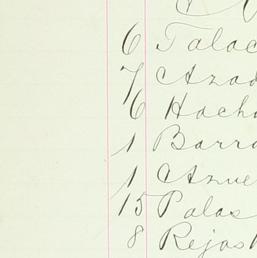 6 Talac
7 Azad
6 Hacha
1 Barra
1 Anve
15 Palas
8 Rejas